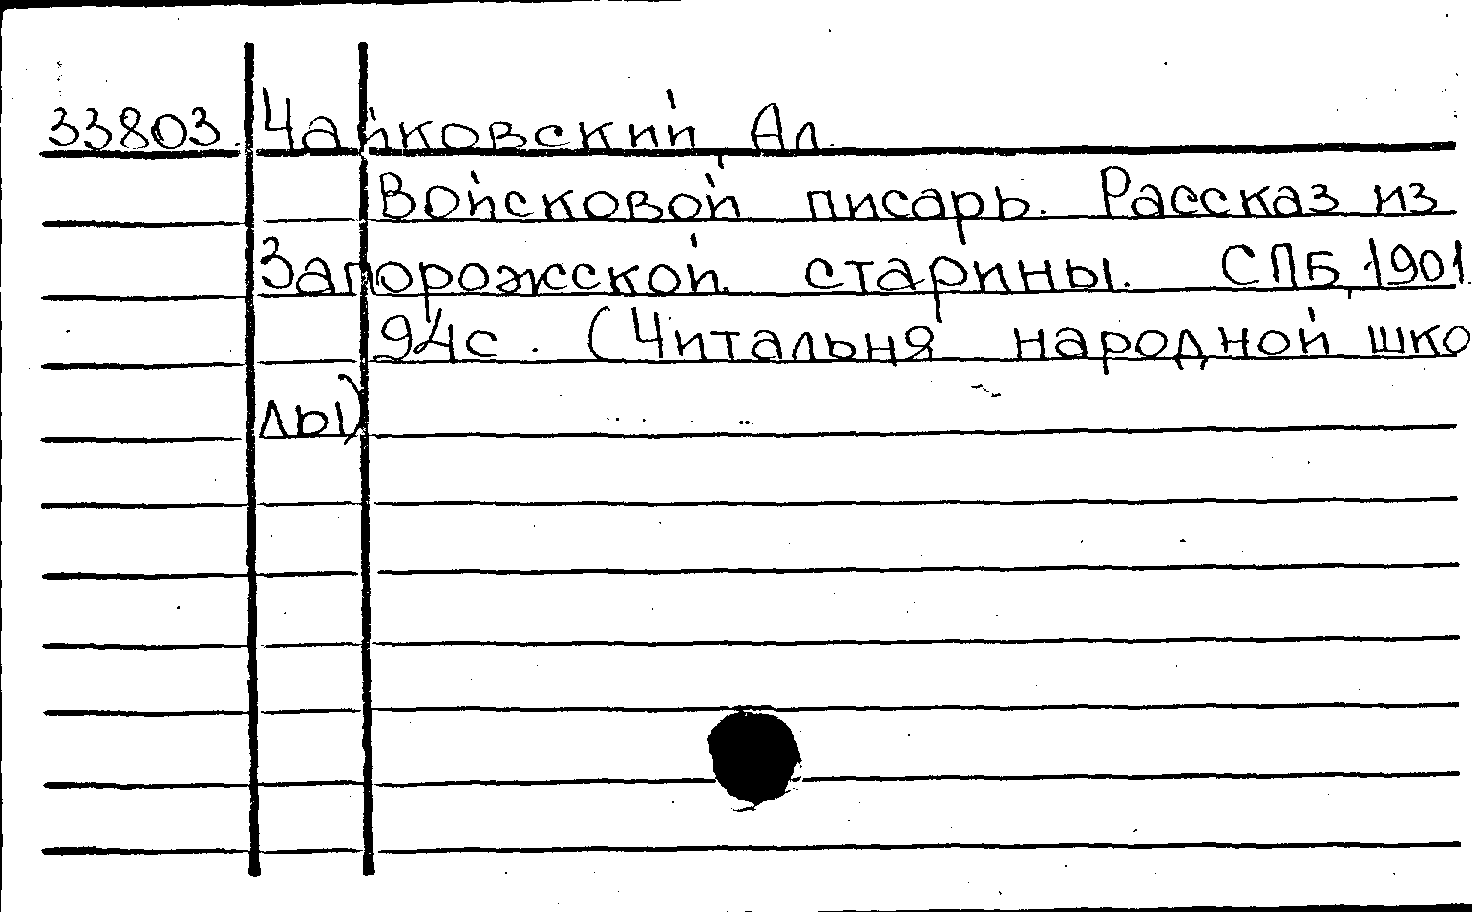 33803. Чайковский, Ал.
Войсковой писарь. Рассказ из
Запорожской старины. СПБ, 1901.
94с. (Читальня народной шко
лы)